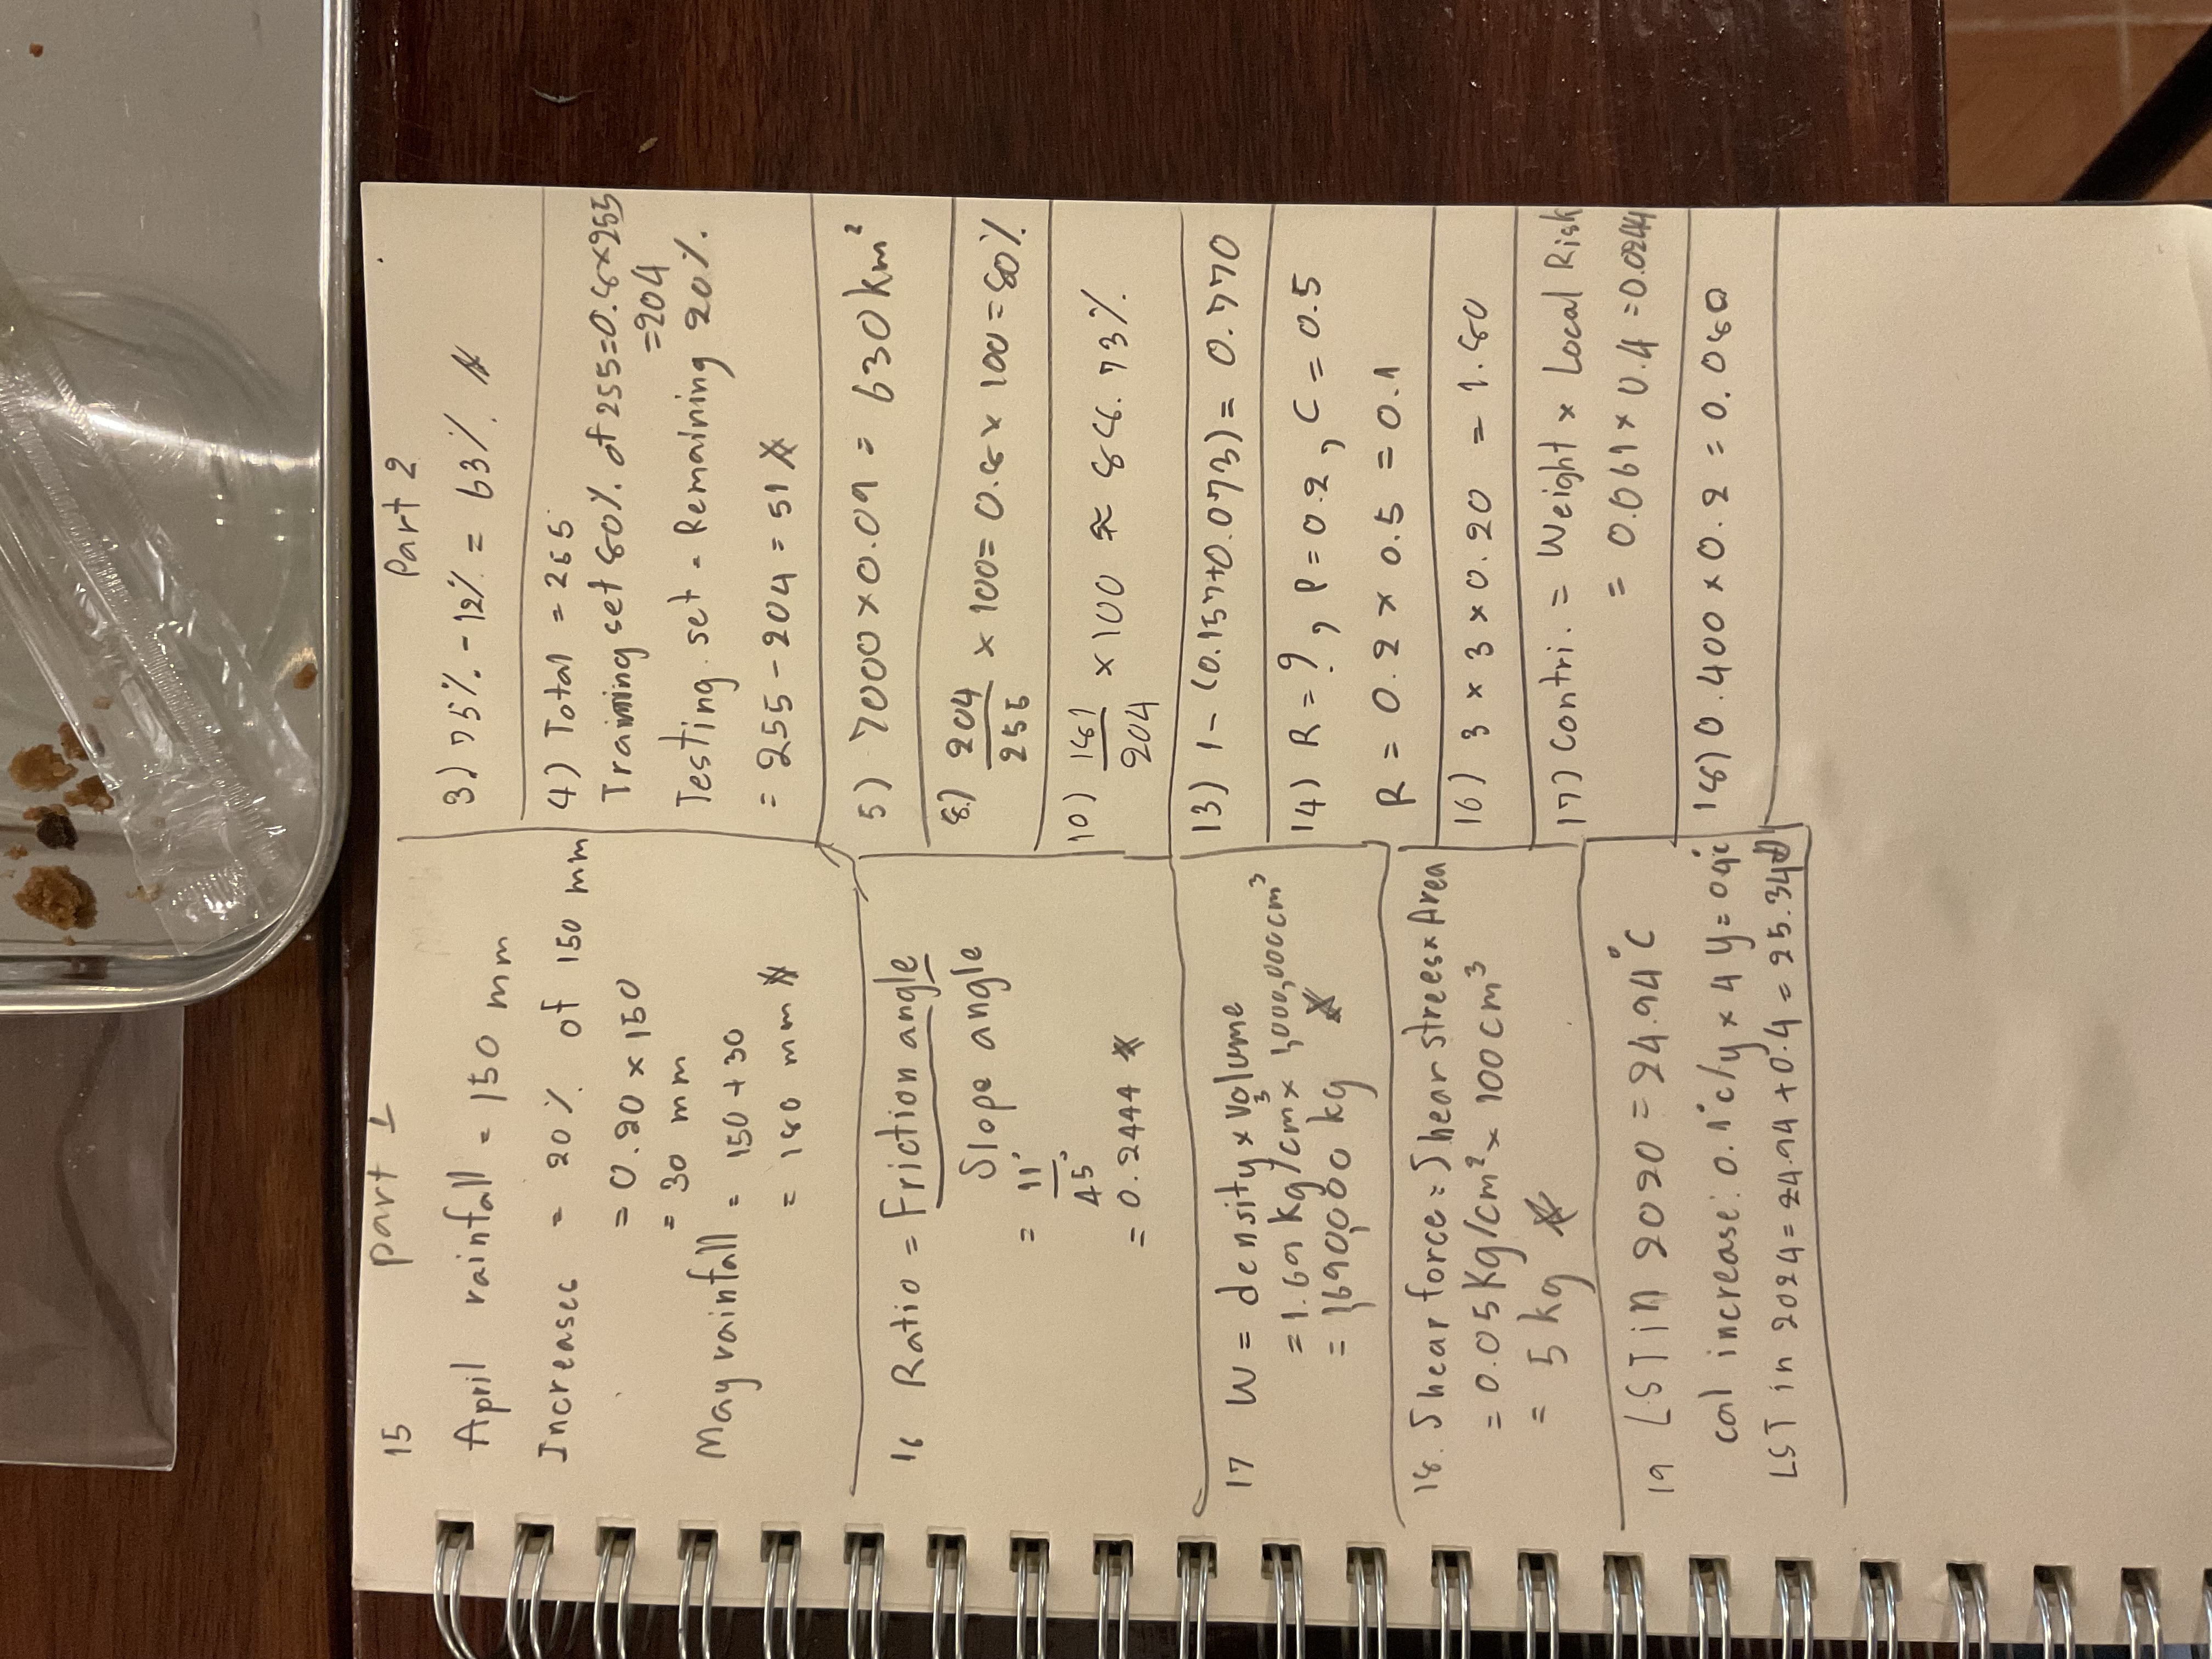 Part 1
15
April rainfall = 150 mm
Increases = 20% of 150 mm
= 0.20 × 150
= 30 mm
May rainfall = 150 + 30
= 180 mm
16 Ratio = Friction angle
Slope angle
= 11°
45°
= 0.2444
17 W = density × Volume
= 1.69 kg/cm³ × 1,000,000 cm³
= 1,690,000 kg
18. Shear force = Shear strees × Area
= 0.05 Kg/cm² × 100 cm³
= 5 kg
19 LST in 2020 = 24.94°C
cal increase: 0.1°c/y × 4 y = 0.4°c
LST in 2024 = 24.94 + 0.4 = 25.34
Part 2
3) 75% - 12% = 63%
4) Total = 255
Training set 80% of 255 = 0.8 × 255
= 204
Testing set = Remaining 20%
= 255 - 204 = 51
5) 7000 × 0.09 = 630 km²
8) 204
255 × 100 = 0.8 × 100 = 80%
10) 181
204 × 100 ≈ 88.73%
13) 1 - (0.157 + 0.073) = 0.770
14) R = ?, P = 0.2, C = 0.5
R = 0.2 × 0.5 = 0.1
16) 3 × 3 × 0.20 = 1.80
17) Contri. = Weight × Local Risk
= 0.061 × 0.4 = 0.0244
18) 0.400 × 0.2 = 0.080